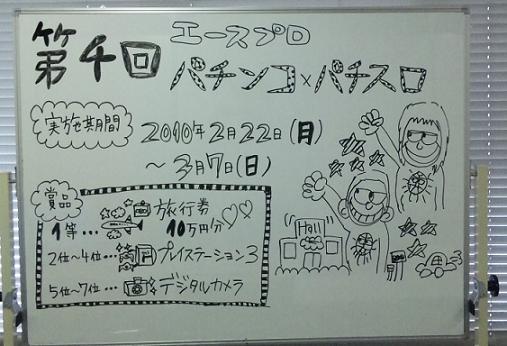 第4回
エースプロ
パチンコ×パチスロ
実施期間
2010年2月22日(月)
～3月7日(日)
賞品
1等… 旅行券
10万円分
2位～4位… プレイステーション3
5位～7位… デジタルカメラ
Hall